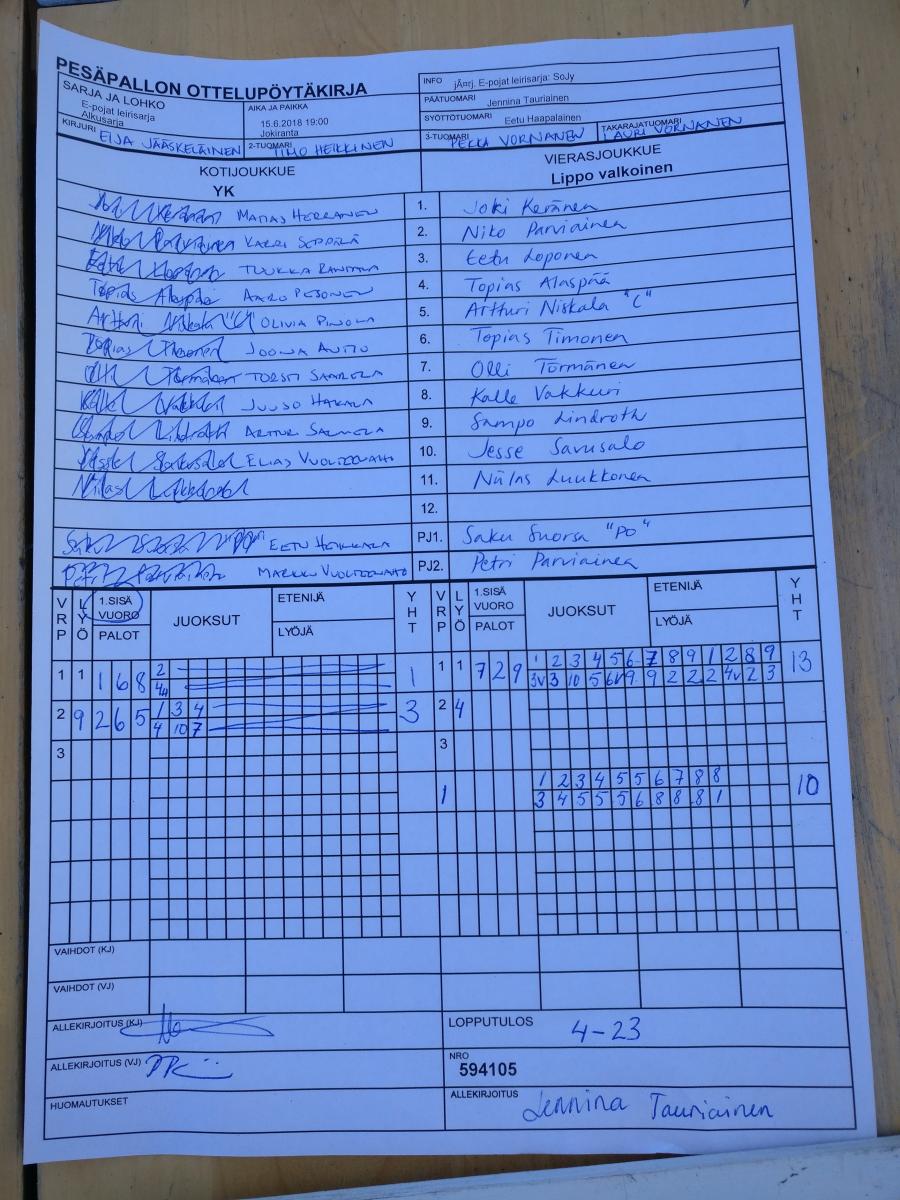 PESÄPALLON OTTELUPÖYTÄKIRJA
SARJA JA LOHKO
E-pojat leirisarja
Alkusarja
AIKA JA PAIKKA
15.6.2018 19:00
Jokiranta
INFO järj. E-pojat leirisarja: SoJy
PÄÄTUOMARI Jennina Tauriainen
SYÖTTÖTUOMARI Eetu Haapalainen
KIRJURI EIJA JÄÄSKELÄINEN
2-TUOMARI TIMO HEIKKINEN
3-TUOMARI PEKKA VORNANEN
TAKARAJATUOMARI LAURI VORNANEN
KOTIJOUKKUE
YK
VIERASJOUKKUE
Lippo valkoinen
MATIAS HERRANEN 1. Joki Keränen
KARRI SEPPÄLÄ 2. Niko Parviainen
TUUKKA RANTALA 3. Eetu Loponen
AARO PESONEN 4. Topias Alaspää
OLIVIA PINOLA 5. Artturi Niskala "C"
JOONA AUTIO 6. Topias Timonen
TORSTI SAARELA 7. Olli Törmänen
JUUSO HAKALA 8. Kalle Vakkuri
ARTTURI SALMELA 9. Sampo Lindroth
ELIAS 10. Jesse Savusalo
11. Niilas Luukkonen
12.
EETU HEIKKALA PJ1. Saku Suorsa "PO"
MARKKU PJ2. Petri Parviainen
VRP LYÖ 1.SISÄ VUORO PALOT JUOKSUT ETENIJÄ LYÖJÄ YHT VRP LYÖ 1.SISÄ VUORO PALOT JUOKSUT ETENIJÄ LYÖJÄ YHT
1 1 1 6 8 2 1 1 1 7 2 9 1 2 3 4 5 6 7 8 9 1 2 8 9 13
4u 3v 3 10 5 6v 9 9 2 2 2 4v 2 3
2 9 2 6 5 1 3 4 3 2 4
4 10 7
3 3
1 1 2 3 4 5 5 6 7 8 8 10
3 4 5 5 5 6 8 8 8 1
VAIHDOT (KJ)
VAIHDOT (VJ)
ALLEKIRJOITUS (KJ)
LOPPUTULOS 4-23
ALLEKIRJOITUS (VJ)
NRO
594105
HUOMAUTUKSET
ALLEKIRJOITUS Jennina Tauriainen